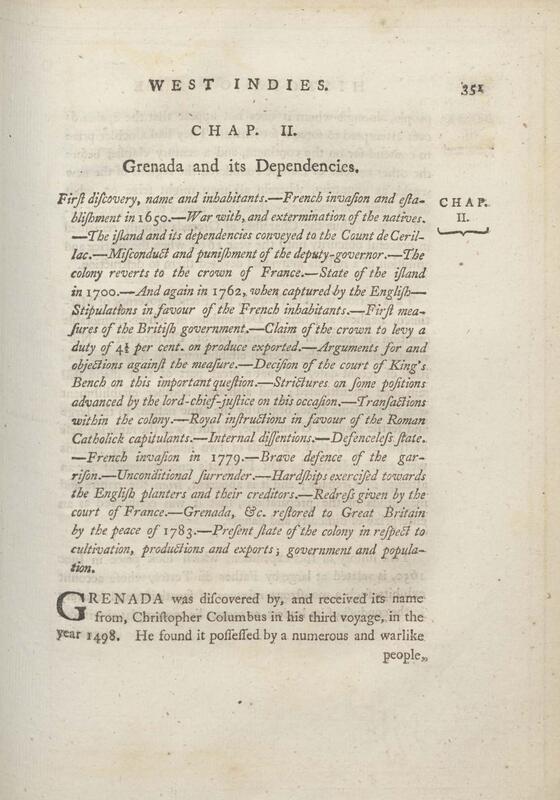 WEST INDIES. 351
CHAP. II.
Grenada and its Dependencies.
Firſt diſcovery, name and inhabitants.—French invaſion and eſta-
bliſhment in 1650.—War with, and extermination of the natives.
—The iſland and its dependencies conveyed to the Count de Ceril-
lac.—Miſconduct and puniſhment of the deputy-governor.—The
colony reverts to the crown of France.—State of the iſland
in 1700.—And again in 1762, when captured by the Engliſh—
Stipulations in favour of the French inhabitants.—Firſt mea-
ſures of the Britiſh government.—Claim of the crown to levy a
duty of 4½ per cent. on produce exported.—Arguments for and
objections againſt the meaſure.—Deciſion of the court of King's
Bench on this important queſtion.—Strictures on ſome poſitions
advanced by the lord-chief-juſtice on this occaſion.—Tranſactions
within the colony.—Royal inſtructions in favour of the Roman
Catholick capitulants.—Internal diſſentions.—Defenceleſs ſtate.
—French invaſion in 1779.—Brave defence of the gar-
riſon.—Unconditional ſurrender.—Hardſhips exerciſed towards
the Engliſh planters and their creditors.—Redreſs given by the
court of France.—Grenada, &c. reſtored to Great Britain
by the peace of 1783.—Preſent ſtate of the colony in reſpect to
cultivation, productions and exports; government and popula-
tion.
CHAP.
II.
GRENADA was diſcovered by, and received its name
from, Chriſtopher Columbus in his third voyage, in the
year 1498. He found it poſſeſſed by a numerous and warlike
people,